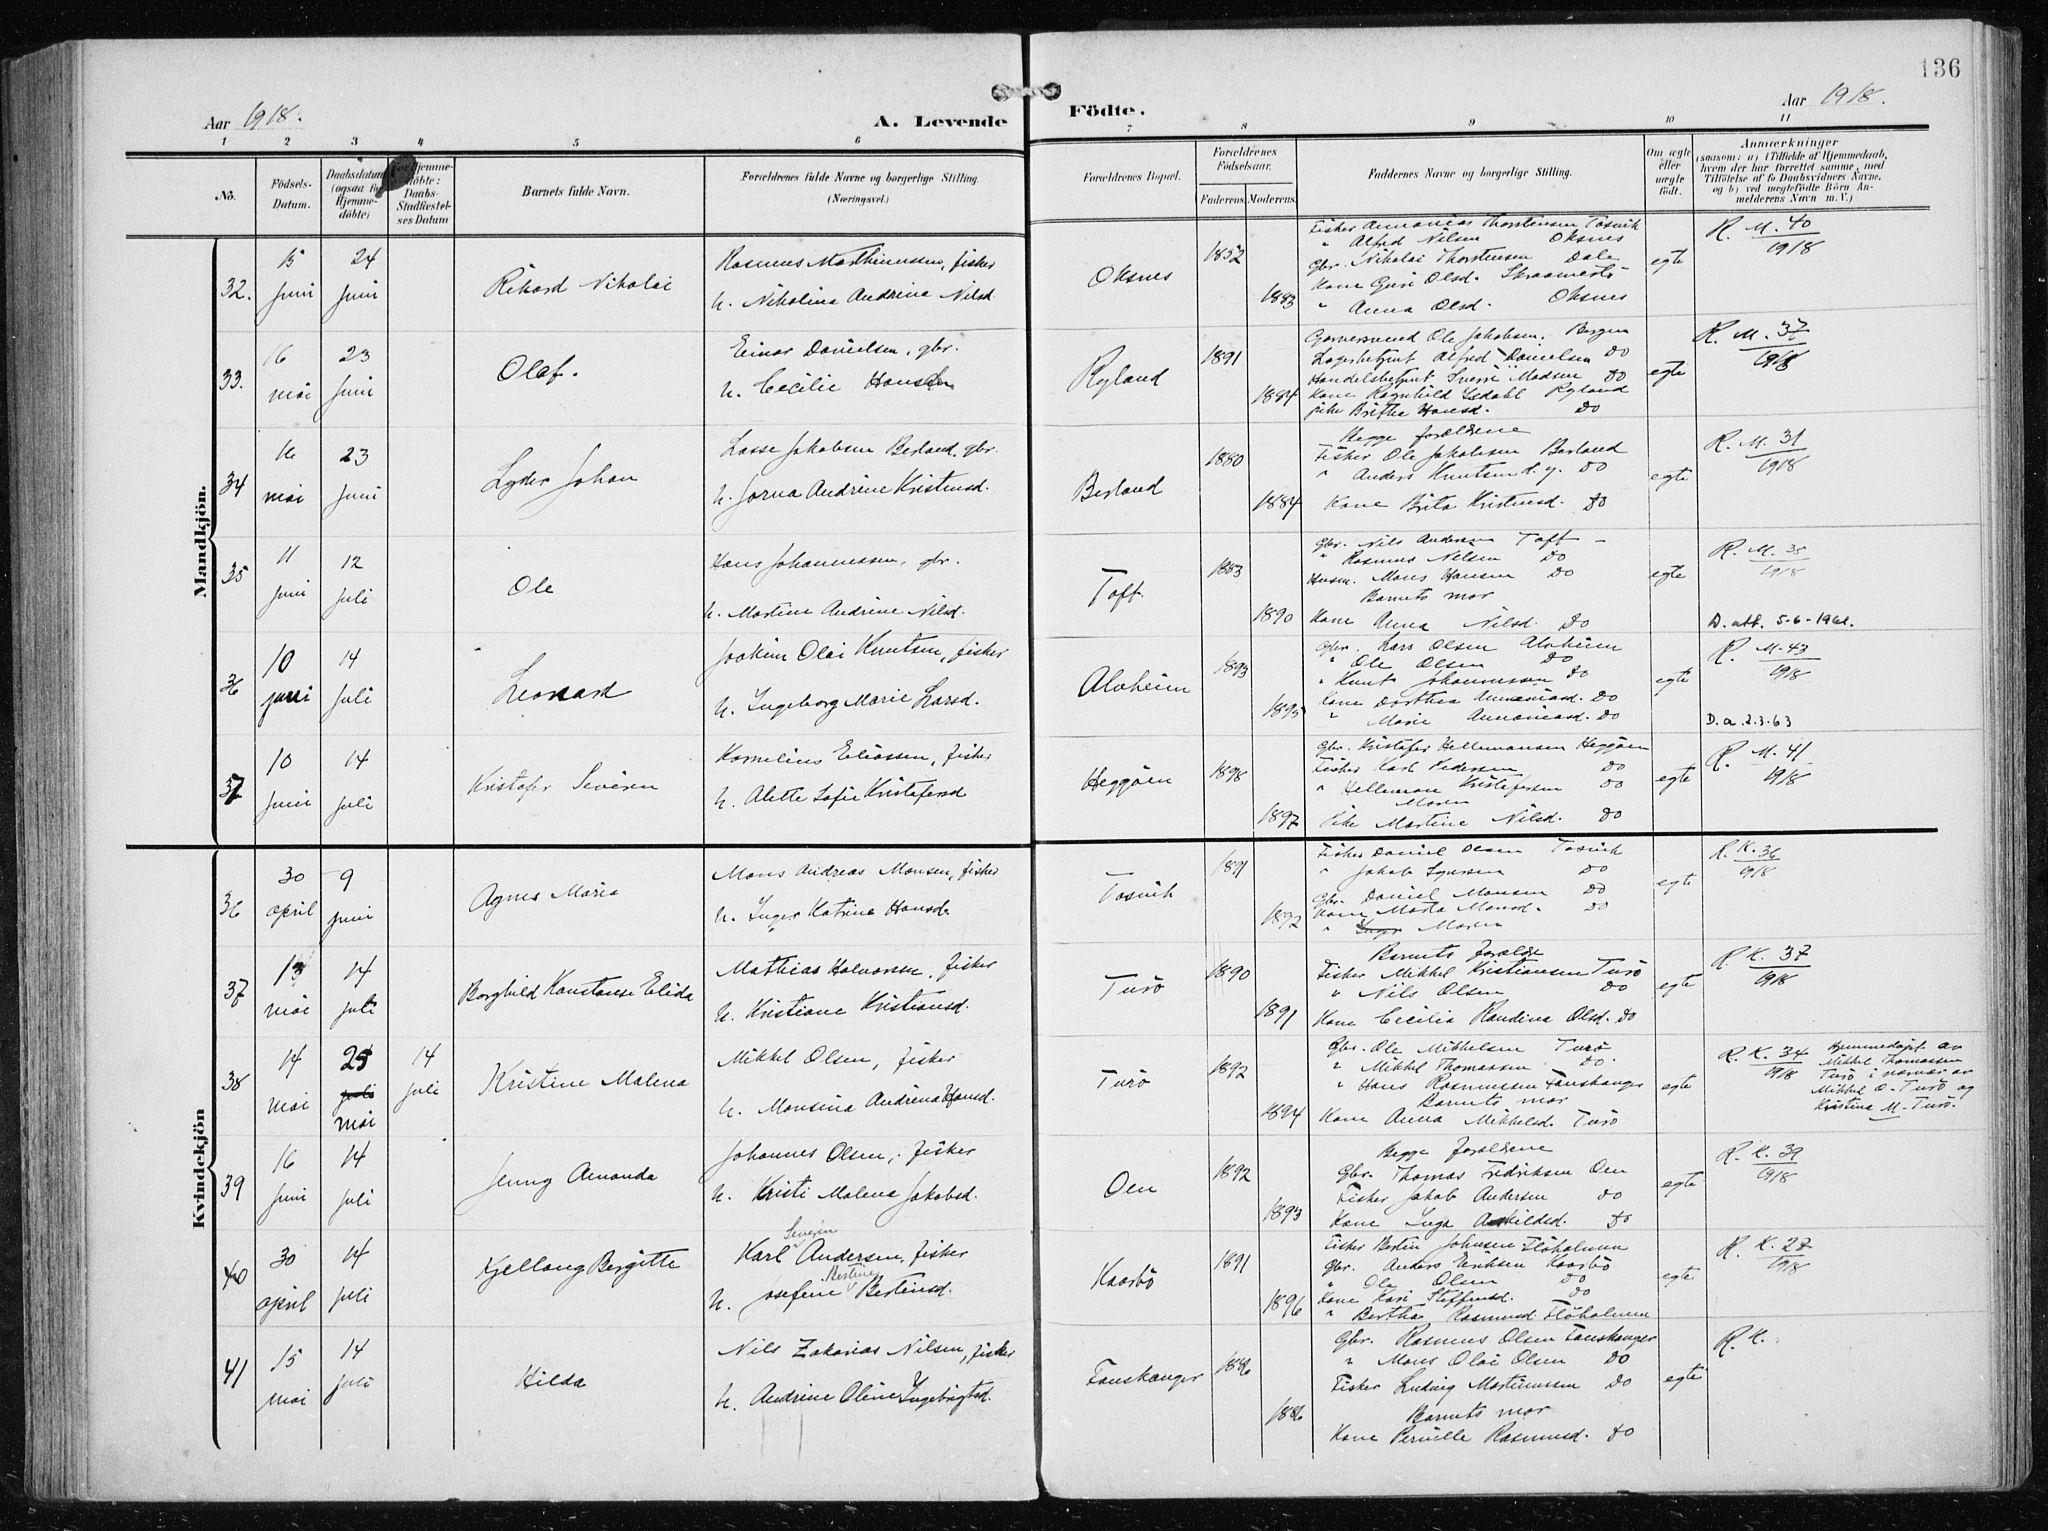 136
Aar 1918.
A. Levende Födte.
Aar 1918.
1 2 3 4 5 6 7 8 9 10 11
No.
Födsels-Datum.
Daabsdatum (ogsaa for Hjemme-döbte)
For Hjemme-döbte: Daabs-Stadfestel-ses Datum
Barnets fulde Navn.
Forældrenes fulde Navne og borgerlige Stilling.
(Næringsvei.)
Forældrenes Bopæl.
Forældrenes Födselsaar.
Faderens. Moderens.
Faddernes Navne og borgerlige Stilling.
Om ægte eller uægte födt.
Anmærkninger
(saasom: a) i Tilfælde af Hjemmedaab,
hvem der har forrettet samme, med
Tilföielse af to Daabsvidners Navne,
og b) ved uægtefödte Börn An-
melderens Navn m. V.)
Mandkjön.
32. 15 juni 24 juni Rikard Nikolai
Rasmus Marthinussen, fisker
h. Nikolina Andrina Nilsd.
Oksnes 1852 1883
Fisker Annanias Thorstensen Tosvik
" Alfred Nilsen Oksnes
Gbr. Nikolai Thorstensen Dale
Kone Guri Olsd.
" Anna Olsd. Oksnes
egte
R. M. 40
1918
33. 16 mai 23 juni Olaf.
Einar Danielsen, gbr.
h. Cecilie Hansen
Ryland 1891 1884
Garversvend Ole Jakobsen. Bergen
Lagerbetjent Alfred Danielsen Do
Handelsbetjent Sverre Madsen Do
Kone Ragnhild Isdahl Ryland
pike Britha Hansd. Do
egte
R. M. 37
1918
34 16 mai 23 juni Lyder Johan
Lasse Jakobsen Berland, gbr.
h. Jorna Andrine Kristensd.
Berland 1880 1884
Begge forældrene
Fisker Ole Jakobsen Berland
" Anders Knutsen d. y. Do
Kone Brita Kristensd. Do
egte
R. M. 31
1918
35 11 juni 12 juli Ole
Hans Johannessen, gbr.
h. Martine Andrine Nilsd.
Toft. 1883 1890
Gbr. Nils Andersen Toft -
" Rasmus Nilsen Do
Husm. Mons Hansen Do
Barnets mor
Kone Anna Nilsd. Do
egte
R. M. 38
1918
D. att. 5-6-1961.
36 10 juni 14 juli Leonard
Joakim Olai Knutsen, fisker
h. Ingeborg Marie Larsd.
Alvheim 1893 1895
Gbr. Lars Olsen Alvheim
" Ole Olsen Do
" Knut Johannessen Do
Kone Dorthea Annaniasd. Do
" Marie Annaniasd. Do
egte
R. M. 43
1918
D. a. 2.3.63
37 10 juni 14 juli Kristofer Severin
Kornelius Eliassen, fisker
h. Alette Sofie Kristofersd
Heggöen 1898 1897
Gbr. Kristofer Hellemansen Heggöen
Fisker Karl Pedersen Do
" Helleman Kristofersen Do
Moren
Pike Martine Nilsd. Do
egte
R. M. 41
1918
Kvindekjön
36 30 april 9 juni Agnes Maria
Mons Andreas Monsen, fisker
h. Inger Katrine Hansd.
Tosvik 1891 1892
Fisker Daniel Olsen Tosvik
" Jakob Do
Gbr. Daniel Monsen Do
Kone Marta Monsd. Do
" Inger Moren
egte
R. K. 36
1918
37 13 mai 14 juli Borghild Konstanse Elida
Mathias Halvorsen, fisker
h. Kristiane Kristiansd.
Turö 1890 1891
Barnets forældre
Fisker Mikkel Kristiansen Turö
" Nils Olsen Do
Kone Cecilia Randina Olsd. Do
egte
R. K. 37
1918
38 14 mai 25 juli mai 14 juli Kristine Malena
Mikkel Olsen, fisker
h. Monsina Andrina Hansd.
Turö 1892 1894
Gbr. Ole Mikkelsen Turö
" Mikkel Thomassen Do.
" Hans Rasmussen Fonskanger
Barnets mor
Kone Anna Mikkelsd. Turö
egte
R. K. 34
1918
Hjemmedöpt av
Mikkel Thomassen
Turö i nærvær av
Mikkel O. Turö og
Kristina M. Turö.
39 16 juni 14 juli Jenny Amanda
Johannes Olsen, fisker
h. Kristi Malena Jakobsd.
Oen 1892 1893
Begge forældrene
Gbr. Thomas Fredriksen Oen
Fisker Jakob Andersen Do
Kone Inga Askildsd. Do
egte
R. K. 39
1918
40 30 april 14 juli Kjellaug Bergitte
Severin
Karl Andersen, fisker
Bertine
h. Josefine Bertinsd.
Kaarbö 1891 1896
Fisker Bertin Johnsen Flöholmen
Gbr. Anders Eriksen Kaarbö
" Ole Olsen Do
Kone Kari Steffensd. Do
" Bertha Rasmusd Flöholmen
egte
R. K. 27
1918
41 15 mai 14 juli Hilda
Nils Zakarias Nilsen, fisker
h. Andrine Oline Ingebrigtsd.
Fonskanger 1886 1886
Gbr. Rasmus Olsen Fonskanger
" Mons Olai Olsen Do
Fisker Ludvig Martinussen Do
Barnets mor
Kone Pernille Rasmusd. Do
egte
R. K.